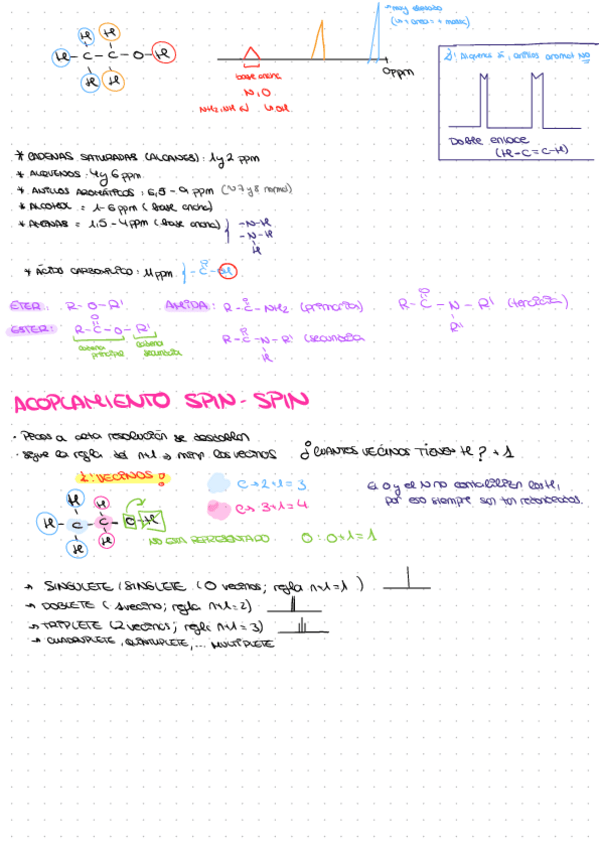 muy elevado
(↳ + area = + masa)
H
H - C - C - O - H
H H
0ppm
base ancha
N, O
NH2, NH ó OH
2! Alquenos sí, anillos aromat NO
Doble enlace
(H-C=C-H)
* CADENAS SATURADAS (ALCANES): 1 y 2 ppm
* ALQUENOS: 4 y 6 ppm
* ANILLOS AROMÁTICOS: 6,5 - 9 ppm (~7 y 8 normal)
* ALCOHOL = 1-6 ppm (base ancha)
* AMINAS = 1,5 - 4 ppm (base ancha) } -N-H
-N-H
H
* ÁCIDOS CARBOXÍLICO: 11 ppm } -C-OH
O
ETER: R-O-R'
AMIDA: R-C-NH2 (primaria)
O
R-C-N-R' (terciaria)
O
R''
ESTER: R-C-O-R'
O
cadena principal
cadena secundaria
R-C-N-R' (secundaria
O
H
ACOPLAMIENTO SPIN-SPIN
· Picos a alta resolución se desdoblan
· Sigue la regla del n+1 → mirar los vecinos ¿CUANTOS VECINOS TIENE H? + 1
1! VECINOS!
C → 2+1 = 3
C → 3+1 = 4
El O y el N no contabilizan los H,
por eso siempre son tan redondeados.
H H
H - C - C - O - H
H H
NO ESTA REPRESENTADO
O: 0+1 = 1
→ SINGULETE / SINGLETE (0 vecinos; regla n+1=1)
→ DOBLETE (1 vecino; regla n+1=2)
→ TRIPLETE (2 vecinos; regla n+1=3)
→ CUADRUPLETE, QUINTUPLETE, ... MULTIPLETE